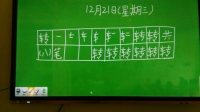 12月21日(星期三)
转 一 ナ 车 车 转 转 转 共
(八)笔 转 转 转 转 转